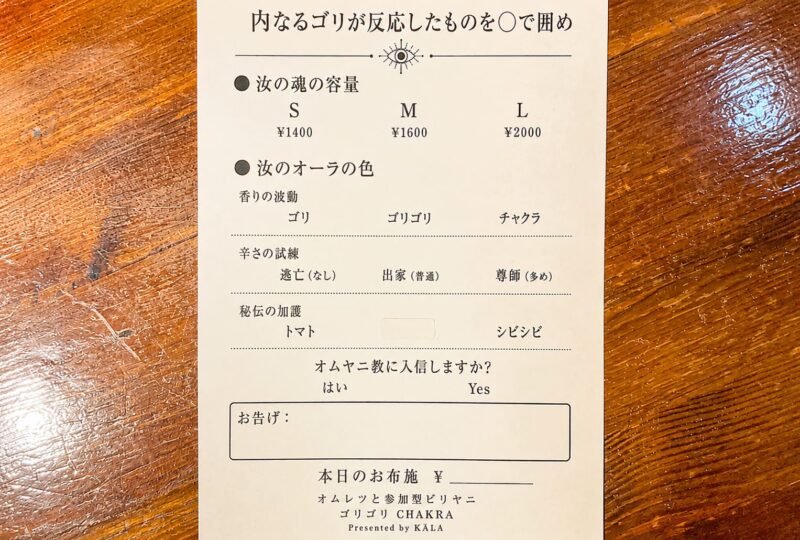 内なるゴリが反応したものを〇で囲め
●汝の魂の容量
S M L
¥1400 ¥1600 ¥2000
●汝のオーラの色
香りの波動
ゴリ ゴリゴリ チャクラ
辛さの試練
逃亡(なし) 出家(普通) 尊師(多め)
秘伝の加護
トマト シビシビ
オムヤニ教に入信しますか?
はい Yes
お告げ:
本日のお布施 ¥
オムレツと参加型ビリヤニ
ゴリゴリ CHAKRA
Presented by KĀLA